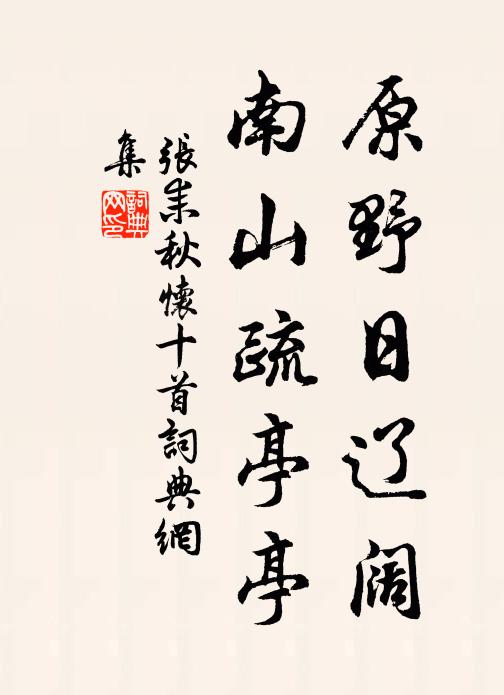 原野日辽阔
南山疏亭亭
張耒秋懷十首詞典網
集
詞典
网印